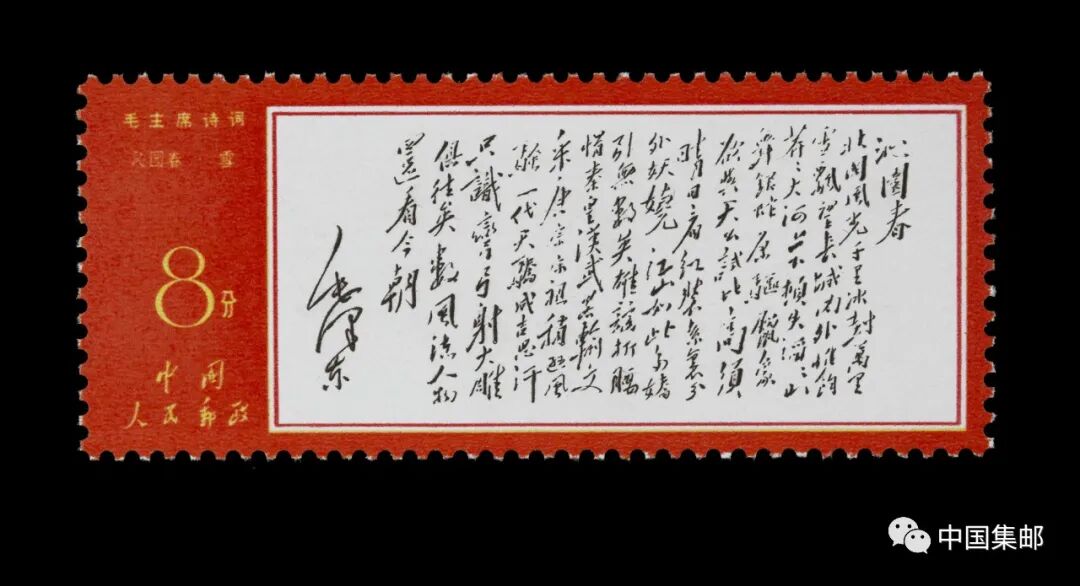 毛主席诗词
沁园春 雪
8分
中國
人民郵政
沁園春
北國風光千里冰封萬里
雪飄望長城內外惟餘
莽々大河上下頓失滔々山
舞銀蛇原驅臘象
欲與天公試比高須
晴日看紅裝素裹分
外妖嬈江山如此多嬌
引無數英雄競折腰
惜秦皇漢武略輸文
采唐宗宋祖稍遜風
騷一代天驕成吉思汗
只識彎弓射大雕
俱往矣數風流人物
還看今朝
毛澤東
中国集邮